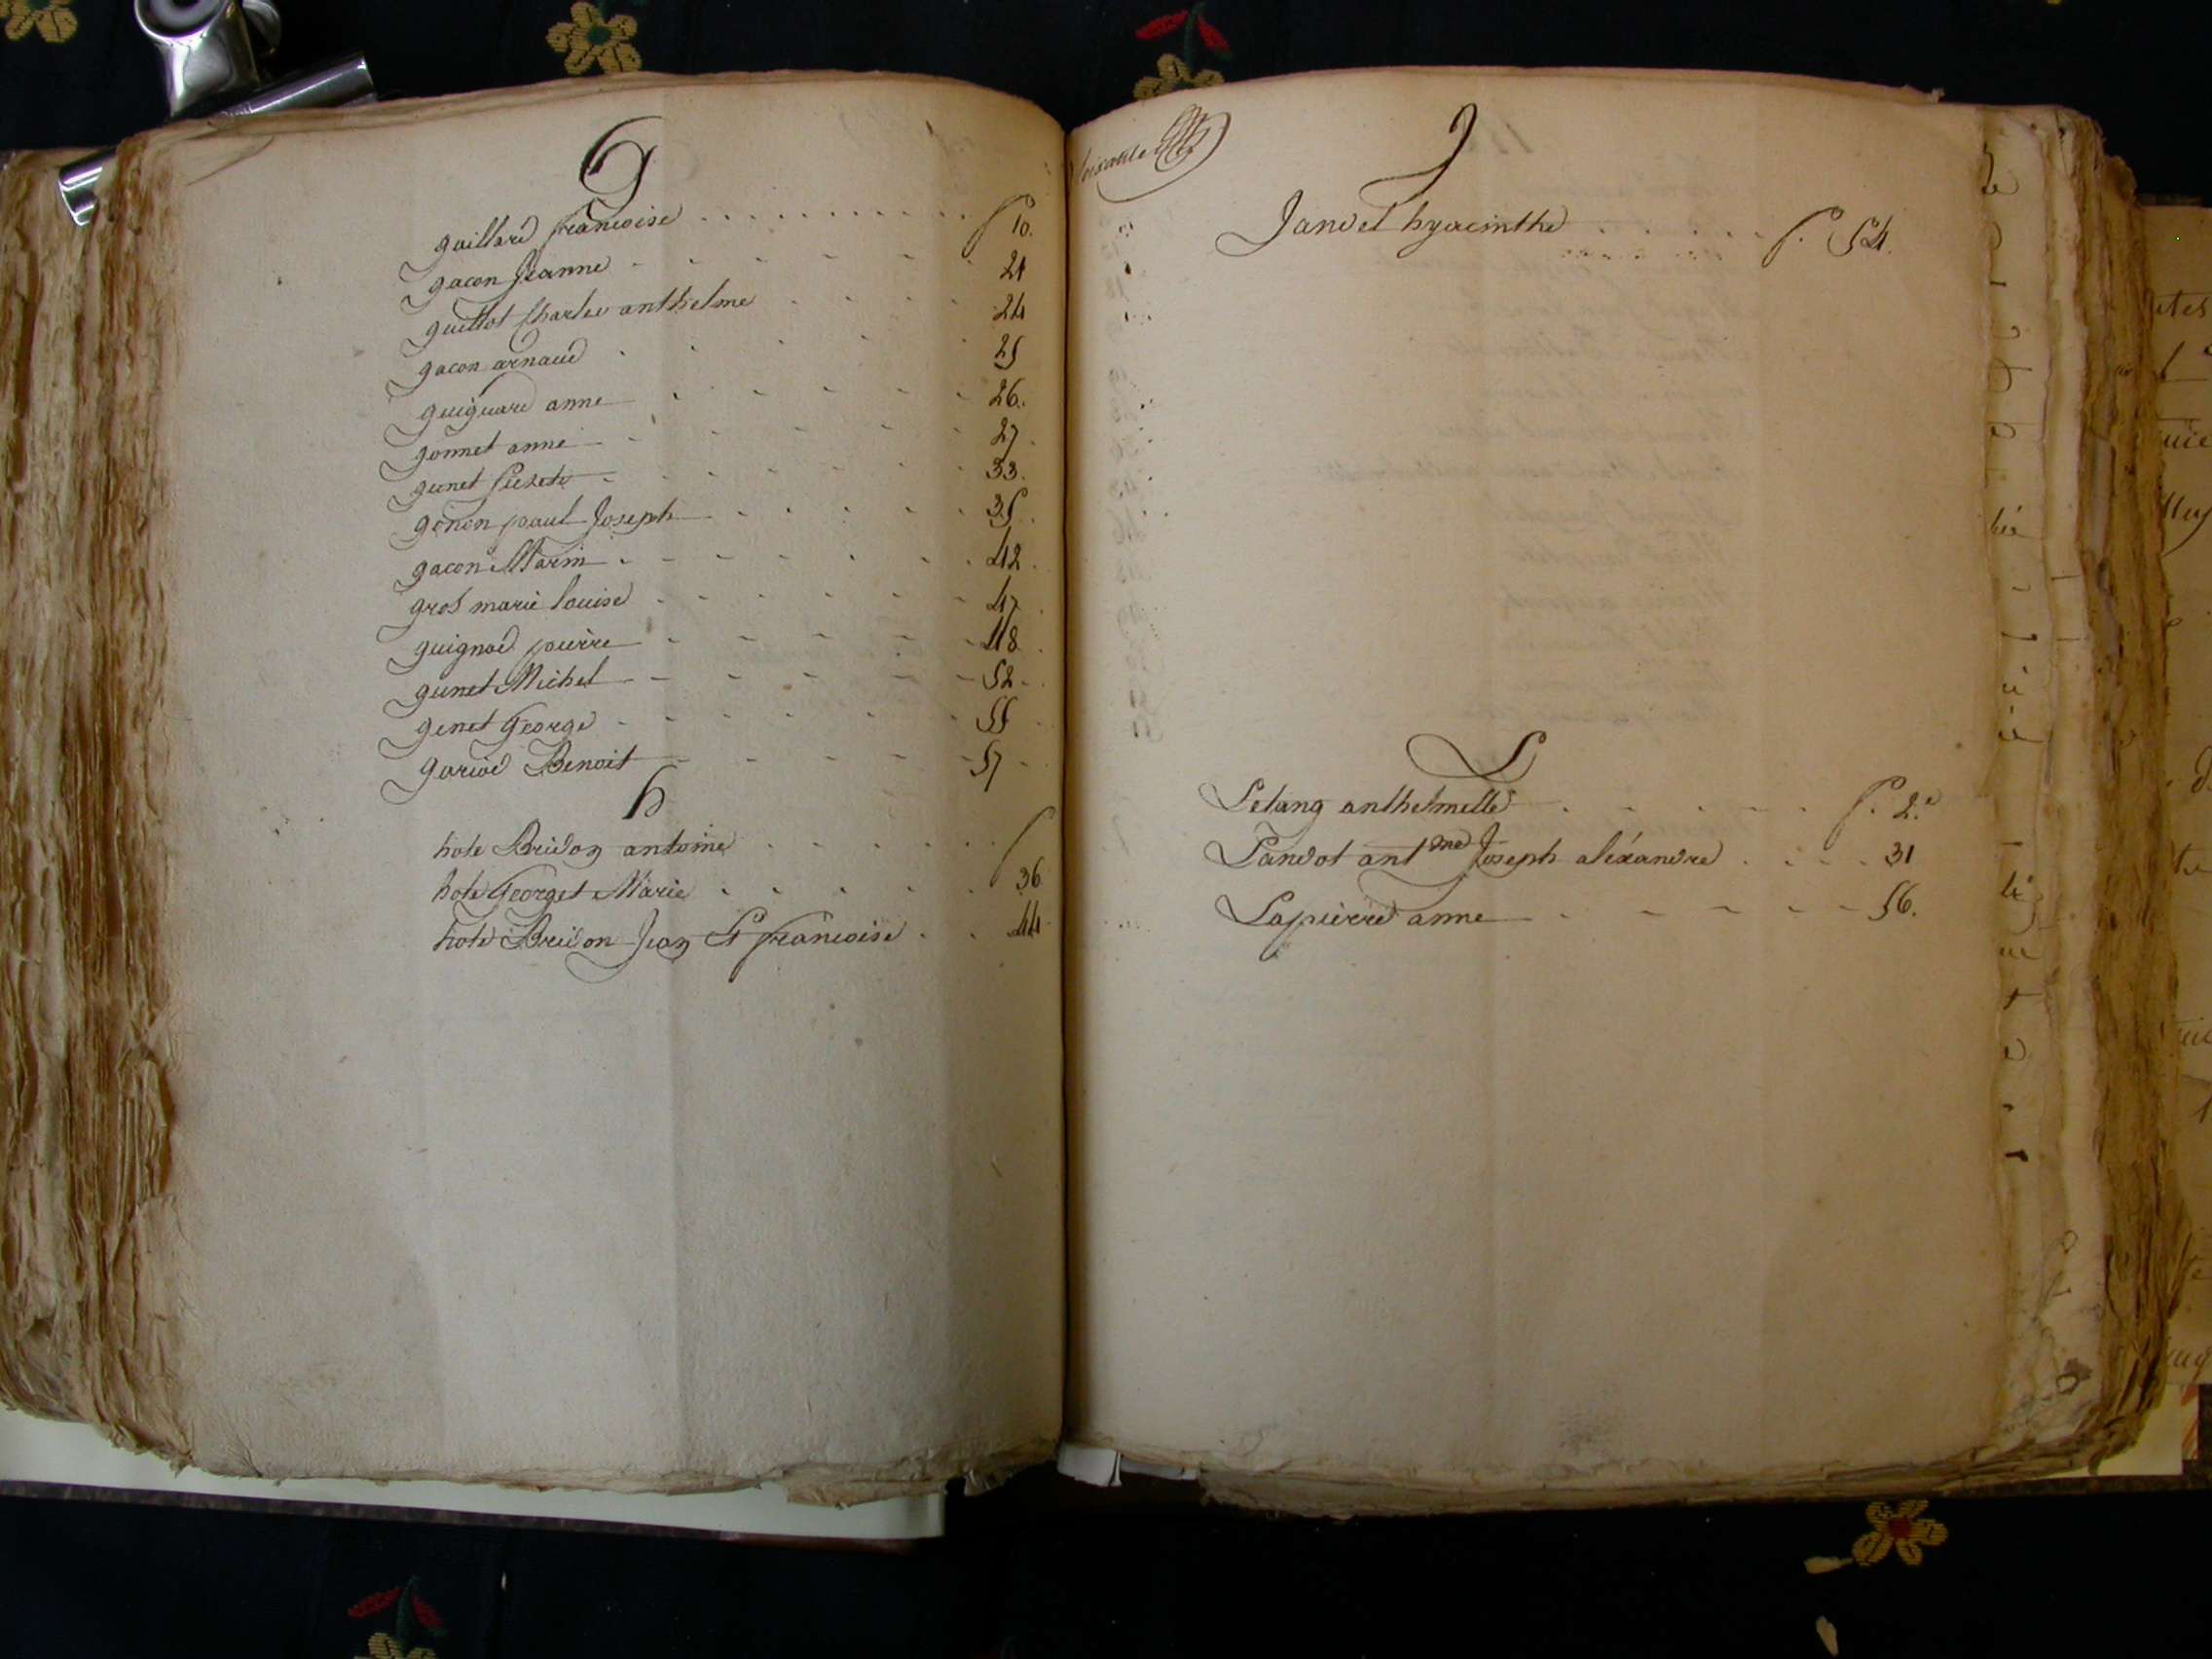 G
gaillard françoise . . . . . . . . . . f 10.
gacon Jeanne - - - - - - 21
guillot Charles anthelme . . . 24
gacon arnaud . . . . . 25
guiguard anne - - - - - 26.
gonnet anne - - - - - 27.
gunet - - - - - 33.
genon paul Joseph - - - - 35.
gacon Marin - - - - - 42.
gros marie louise - - - - - 47.
guignod pierre - - - - - 48.
gunet Michel - - - - - 52.
genet George - - - - - 55
gariod Benoit - - - - - 57
h
hote Bridon antoine . . . . . . f
hote Georget Marie . . . . . 36.
hote Bridon Jean et françoise . . 44.
J
Jandet hyacinthe . . . . . f. 54.
L
Letang anthelmette . . . . . f. 2.e
Landot ant.me Joseph aléxandre . . . . 31
Lapierre anne - - - - - 56.